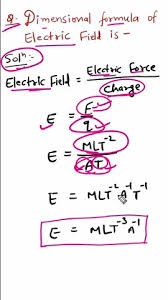 Q. Dimensional formula of
Electric Field is -
Solⁿ:
Electric Field = Electric Force
Charge
E = F
q
E = MLT⁻²
AT
E = MLT⁻² A⁻¹ T⁻¹
E = MLT⁻³ A⁻¹